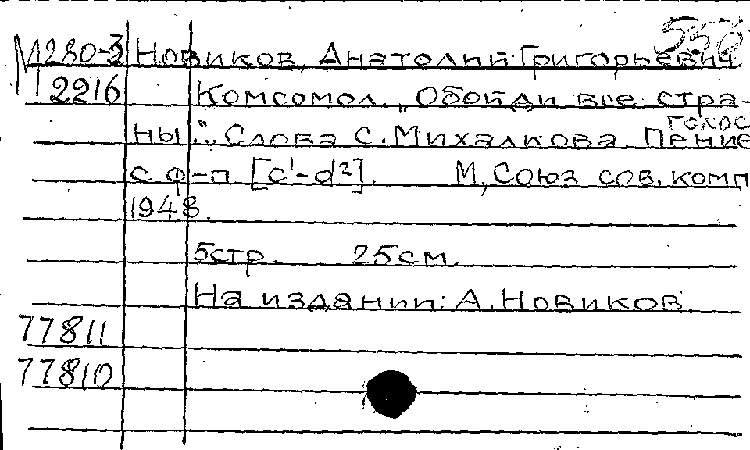 556
М280-3 Новиков, Анатолий Григорьевич
2216 Комсомол. „Обойди все стра-
ны“. Слова С. Михалкова. Пение голос
с ф-п [c¹-d²]. М, Союз сов. комп
1948.
5стр. 25см.
На издании: А. Новиков.
77811
77810